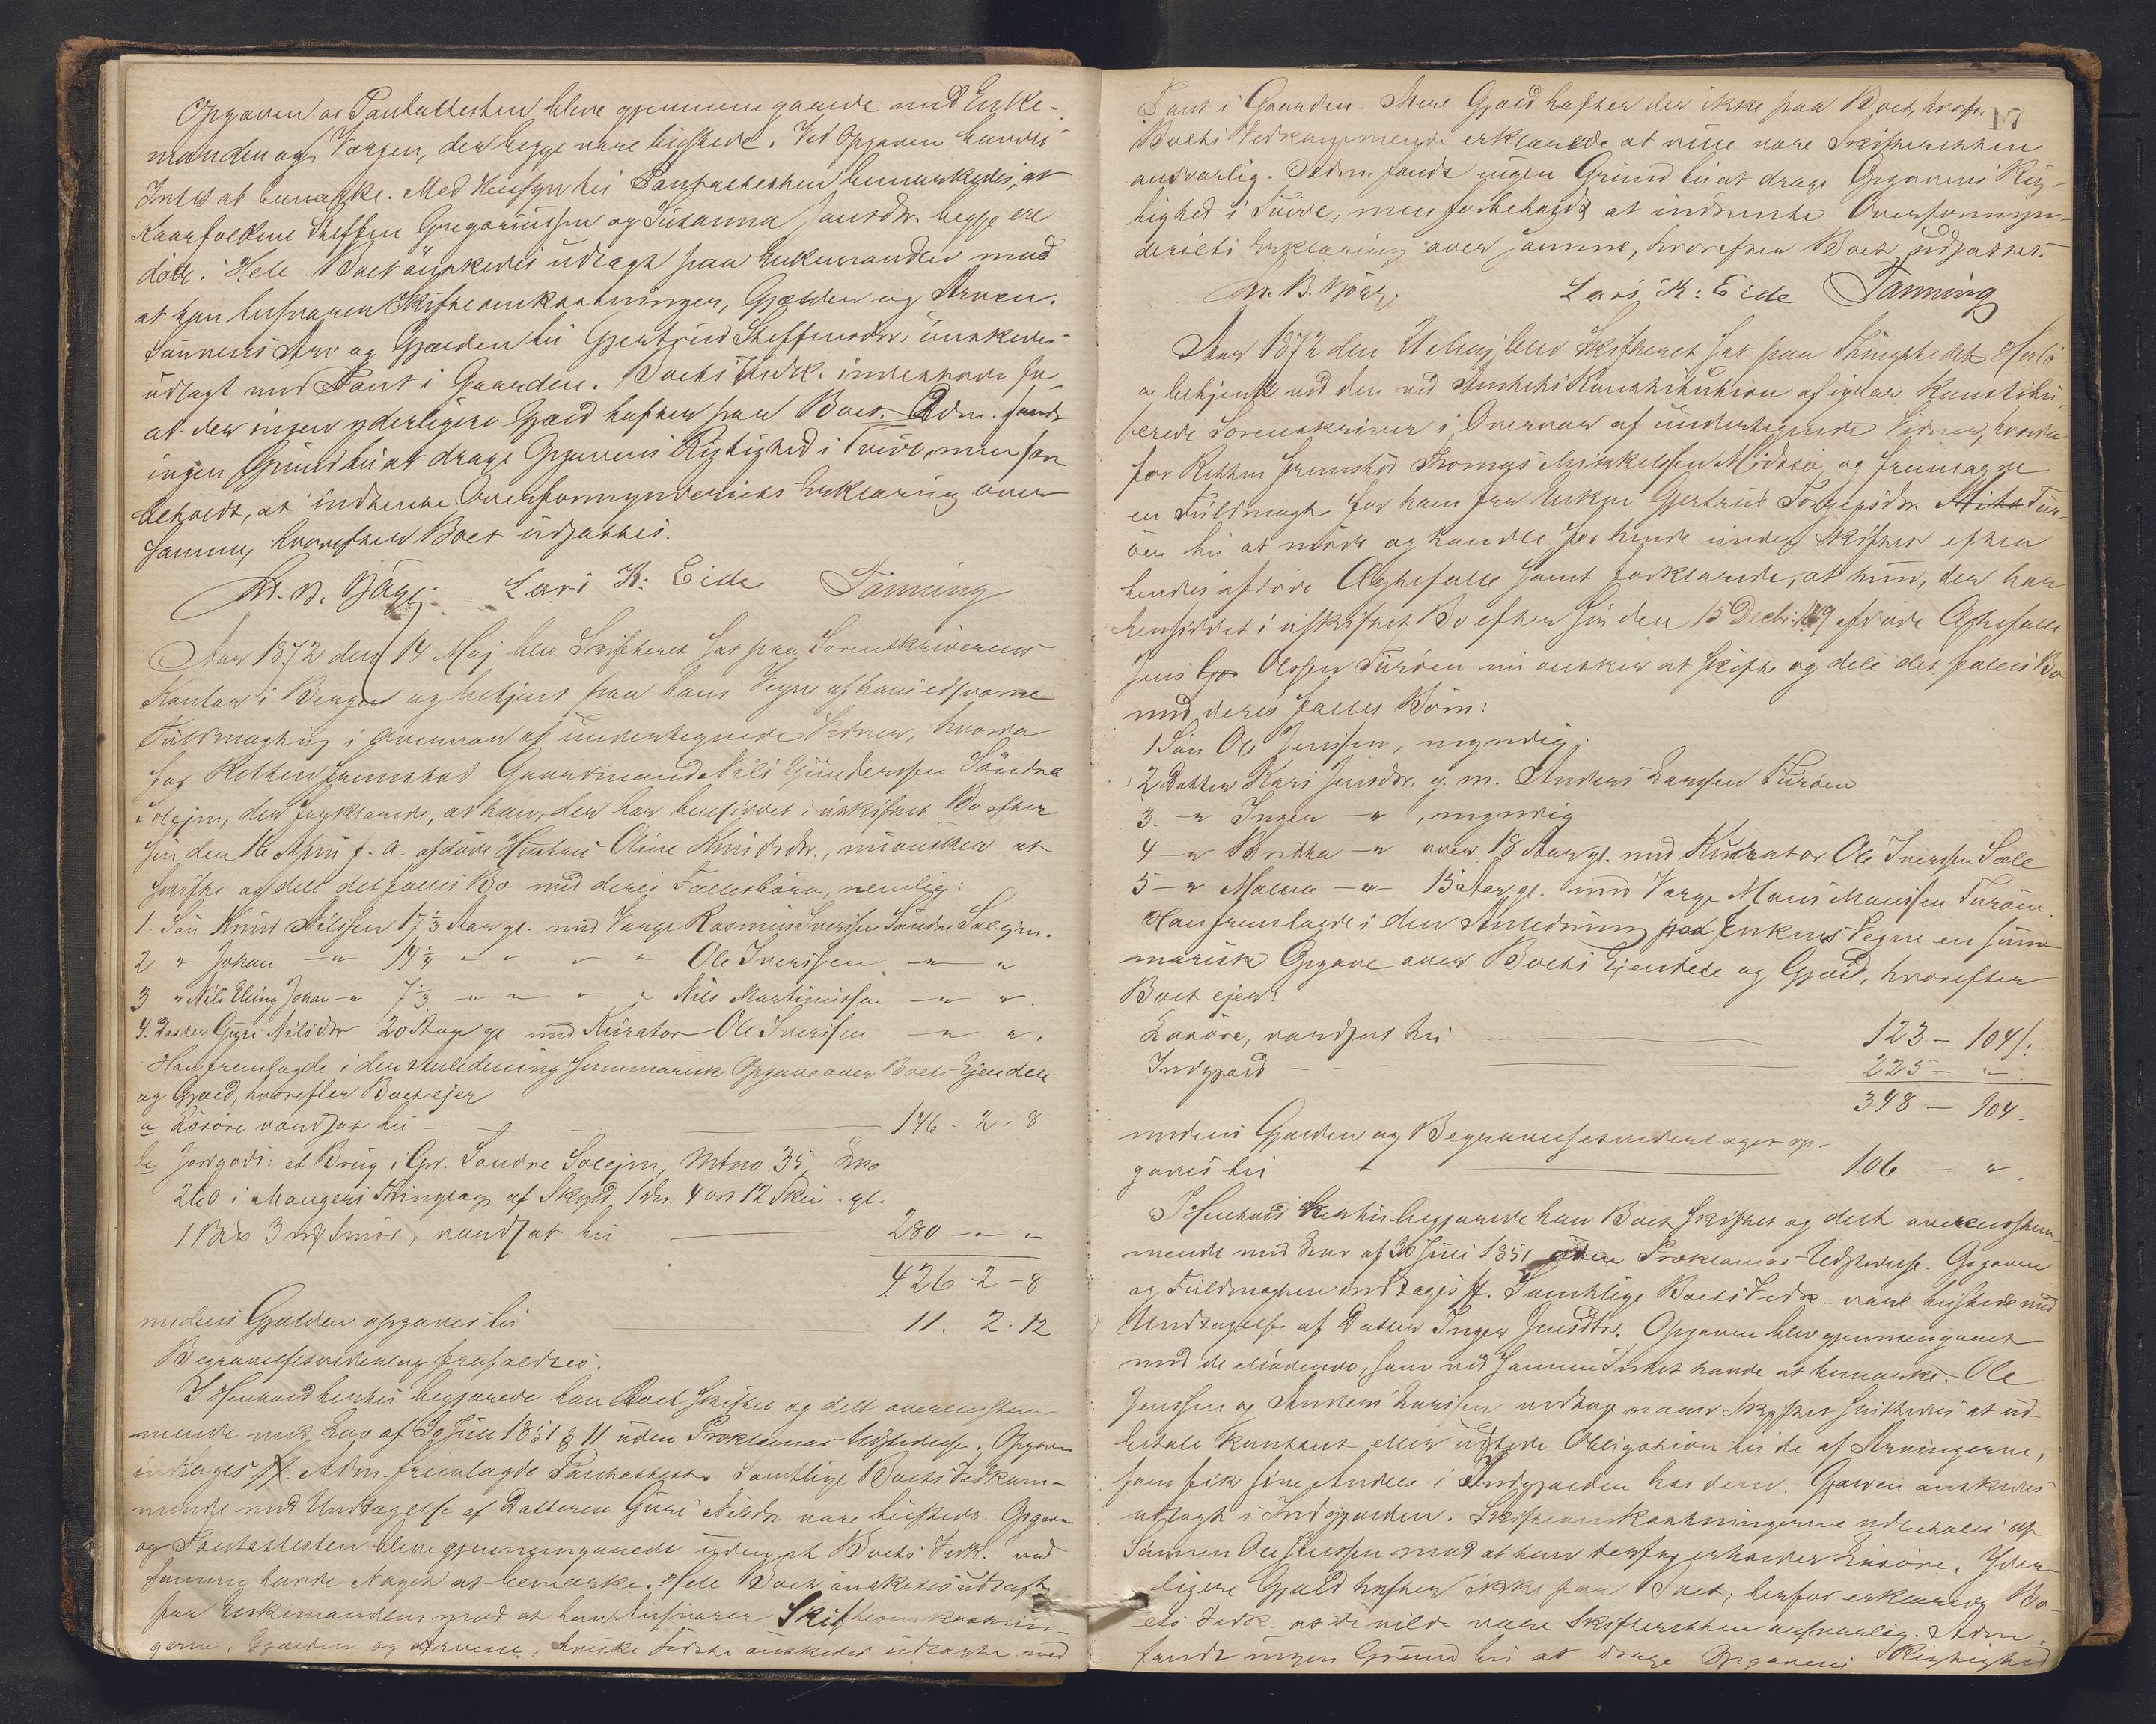 Opgaven og Pantattesten bleve gjennemgaaede med Enke-
manden og Vergen, der begge vare tilstede. Ved Opgaven havdes
Intet at bemærke. Med Hensyn til Pantattesten bemærkedes, at
Kaarfolkene Steffen Gregoriussen og Susanna Jansdtr. begge ere
døde. Hele Boet ønskedes udlagt paa Enkemanden mod
at han tilsvarer Skifteomkostninger, Gjælden og Arven.
Sønnens Arv og Gjælden til Gjertrud Steffensdtr. ønskedes
udlagt med Pant i Gaarden. Boets Vedk. indestode for
at der ingen yderligere Gjæld hefter paa Boet. Adm. fandt
ingen Grund til at drage Opgavens Rigtighed i Tvivl, men for-
beholdt, at indhente Overformynderiets Erklæring over
samme, hvorefter Boet udsattes.
Lars K. Eide Tanning
Aar 1872 den 14 Maj blev Skifteret sat paa Sorenskriverens
Kontor i Bergen og betjent paa hans Vegne af hans edsvorne
Fuldmægtig i Overvær af undertegnede Vidner, hvorda
for Retten fremstod Gaardmand Nils Gundersen Søndre
Solejm, der forklarede, at han, der har hensiddet i uskiftet Bo efter
sin den 16 April f. A. afdøde Hustru Oline Knudsdtr., nu ønsker at
skifte og dele det fælles Bo med deres Fællesbørn, nemlig:
1. Søn Knud Nilssen 17½ Aar gl. med Verge Rasmus Iverssen Søndre Solejm.
2 " Johan — " 14¼ " " " " Ole Iverssen — " "
3 " Nils Elling Johan — " 7½ — " " " " Nils Martinussen — " ".
4. Datter Guri Nilsdtr 20 Aar gl med Kurator Ole Iverssen " ".
Han fremlagde i den Anledning summarisk Opgave over Boets Ejendele
og Gjæld, hvorefter Boet ejer
a Løsøre værdsat til — 146 - 2 - 8
b, Jordgods: et Brug i Gr. Søndre Solejm, Mtno. 35, Lno
260 i Mangers Thinglag af Skyld 1 Dlr. 4 ort 12 Skill. gl.
1 Bpd 3 mk Smør, værdsat til — 280 - " "
426 - 2 - 8
medens Gjælden opgaves til 11. 2. 12
Begravelsesvederlag frafaldtes.
I Henhold hertil begjærede han Boet skiftet og delt overensstem-
mende med Lov af 30 Juli 1851 § 11 uden Proklamas Udstedelse. Opgaven
indtages ff. Adm. fremlagde Pantattest. Samtlige Boets Vedkom-
mende med Undtagelse af Datteren Guri Nilsdtr. vare tilstede. Opgaven
og Pantattesten bleve gjennemgaaede uden at Boets Vedk. ved
samme havde Noget at bemærke. Hele Boet ønskedes udlagt
paa Enkemanden mod at han tilsvarer Skifteomkostnin-
gerne, Gjælden og Arvene, hvilke sidste ønskedes udlagte med
17
Pant i Gaarden. Mere Gjæld hefter der ikke paa Boet, hvorfor
Boets Vedkommende erklærede at ville være Skifteretten
ansvarlig. Adm. fandt ingen Grund til at drage Opgavens Rig-
tighed i Tvivl, men forbeholdt at indhente Overformyn-
deriets Erklæring over samme, hvorefter Boet udsattes.
Lars K. Eide Tanning
Aar 1872 den Maj blev Skifteret sat paa Thingstedet Herlø
og betjent ved den ved Amtets Konstitution af igaar Konstitu-
erede Sorenskriver i Overvær af undertegnede Vidner, hvorda
for Retten fremstod Thomas Mikkelssen Midtsø og fremlagde
en Fuldmagt for ham fra Enken Gjertrud Torgersdtr. Tur-
øen til at møde og handle for hende under Skiftet efter
hendes afdøde Ægtefælle samt forklarede, at hun, der har
hensiddet i uskiftet Bo efter sin den 15 Decbr. afdøde Ægtefælle
Jens Olssen Turøen nu ønsker at skifte og dele det fælles Bo
med deres fælles Børn:
1 Søn Ole Jenssen, myndig.
2 Datter Kari Jensdtr. g. m. Anders Larssen Turøen
3. — " Inger — " , myndig
4 — " Britha — " over 18 Aar gl. med Kurator Ole Iverssen Sæle
5 — " Malene — " — 15 Aar gl. med Verge Mons Monssen Turøen.
Han fremlagde i den Anledning paa Enkens Vegne en sum-
marisk Opgave over Boets Ejendele og Gjæld, hvorefter
Boet ejer:
Løsøre, værdsat til — 123 - 104/:
Indgjæld — 225 - "
348 — 104.
medens Gjælden og Begravelsesvederlaget op-
gaves til — 106 — "
I Henhold hertil begjærede han Boet skiftet og delt overensstem-
mende med Lov af 30 Juli 1851 uden Proklamas Udstedelse. Opgaven
og Fuldmagten indtages ff. Samtlige Boets Vedk. vare tilstede med
Undtagelse af Datter Inger Jensdtr. Opgaven blev gjennemgaaet
med de Mødende, som ved samme Intet havde at bemærke. Ole
Jenssen og Anders Larssen vedtog naar Skiftet sluttedes at ud-
betale kontant eller udstede Obligation til de af Arvingerne,
som fik sine Andele i Indgjælden hos dem. Gjælden ønskedes
udlagt i Indgjælden. Skifteomkostningerne udbetales af
Sønnen Ole Jenssen mod at han derfor erholder Løsøre. Yder-
ligere Gjæld hefter ikke paa Boet; herfor erklærede Bo-
ets Vedk. at de vilde være Skifteretten ansvarlig. Adm.
fandt ingen Grund til at drage Opgavens Rigtighed